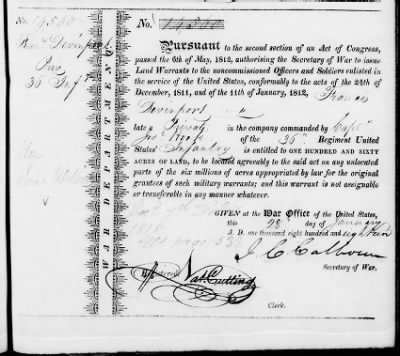 No.
Pursuant to the second section of an Act of Congress,
passed the 6th of May, 1812, authorising the Secretary of War to issue
Land Warrants to the noncommissioned Officers and Soldiers enlisted in
the service of the United States, conformably to the acts of the 24th of
December, 1811, and of the 11th of January, 1812, Francis
Devinport
late a Private in the company commanded by Capt
of the 36th Regiment United
States' Infantry
is entitled to ONE HUNDRED AND SIXTY
ACRES OF LAND, to be located agreeably to the said act on any unlocated
parts of the six millions of acres appropriated by law for the original
grantees of such military warrants; and this warrant is not assignable
or transferable in any manner whatever.
GIVEN at the War Office of the United States,
this day of January
A. D. one thousand eight hundred and eighteen
J. C. Calhoun
Secretary of War.
Nat. Cutting
Clerk.
WAR DEPARTMENT
Devinport
36 Inft